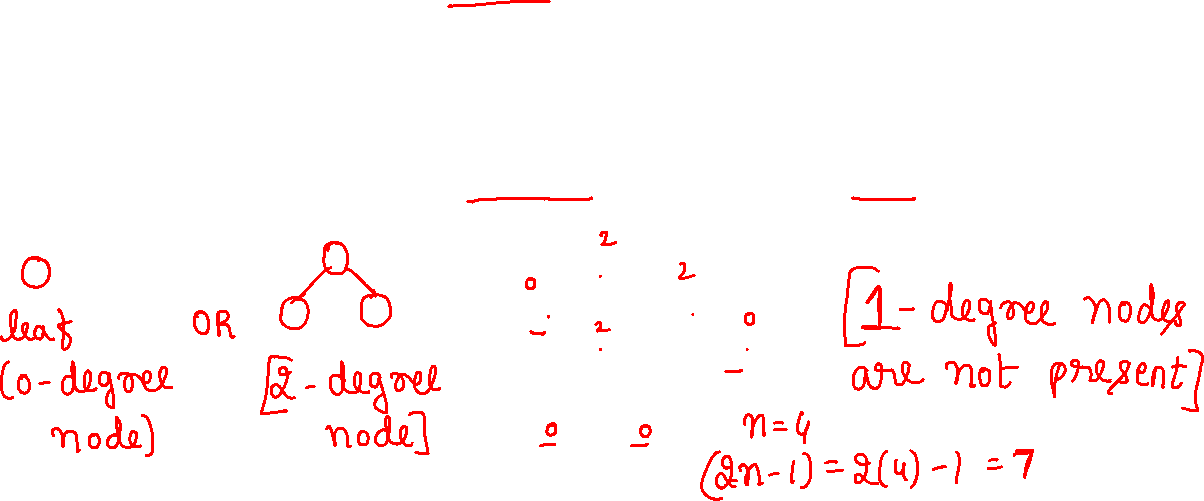 2
2
0
0
2
leaf
(0-degree
node)
OR
[2-degree
node]
0 0
[1-degree nodes
are not present]
n=4
(2n-1)=2(4)-1=7